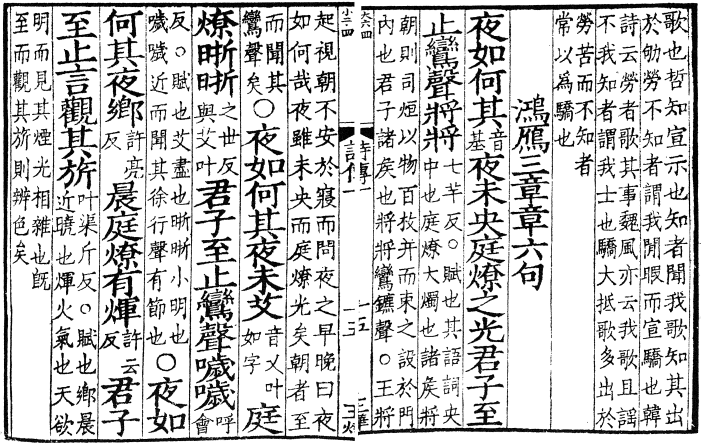 歌也哲知宣示也知者聞我歌知其出
於劬勞不知者謂我閒暇而宣驕也韓
詩云勞者歌其事魏風亦云我歌且謡
不我知者謂我士也驕大抵歌多出於
勞苦而不知者
常以爲驕也
鴻鴈三章章六句
夜如何其音基夜未央庭燎之光君子至
止鸞聲將將七羊反○賦也其語詞央中也庭燎大燭也諸矦將
朝則司烜以物百枚并而束之設於門
内也君子諸矦也將將鸞鑣聲○王將
詩傳一
十五
起視朝不安於寢而問夜之早晚曰夜
如何哉夜雖未央而庭燎光矣朝者至
而聞其
鸞聲矣○夜如何其夜未艾音乂叶如字庭
燎晣晣之世反與艾叶君子至止鸞聲噦噦呼會
反○賦也艾盡也晣晣小明也
噦噦近而聞其徐行聲有節也○夜如
何其夜鄉許亮反晨庭燎有煇許云反君子
至止言觀其旂叶渠斤反○賦也鄉晨近曉也煇火氣也天欲
明而見其煙光相雜也旣
至而觀其旂則辨色矣